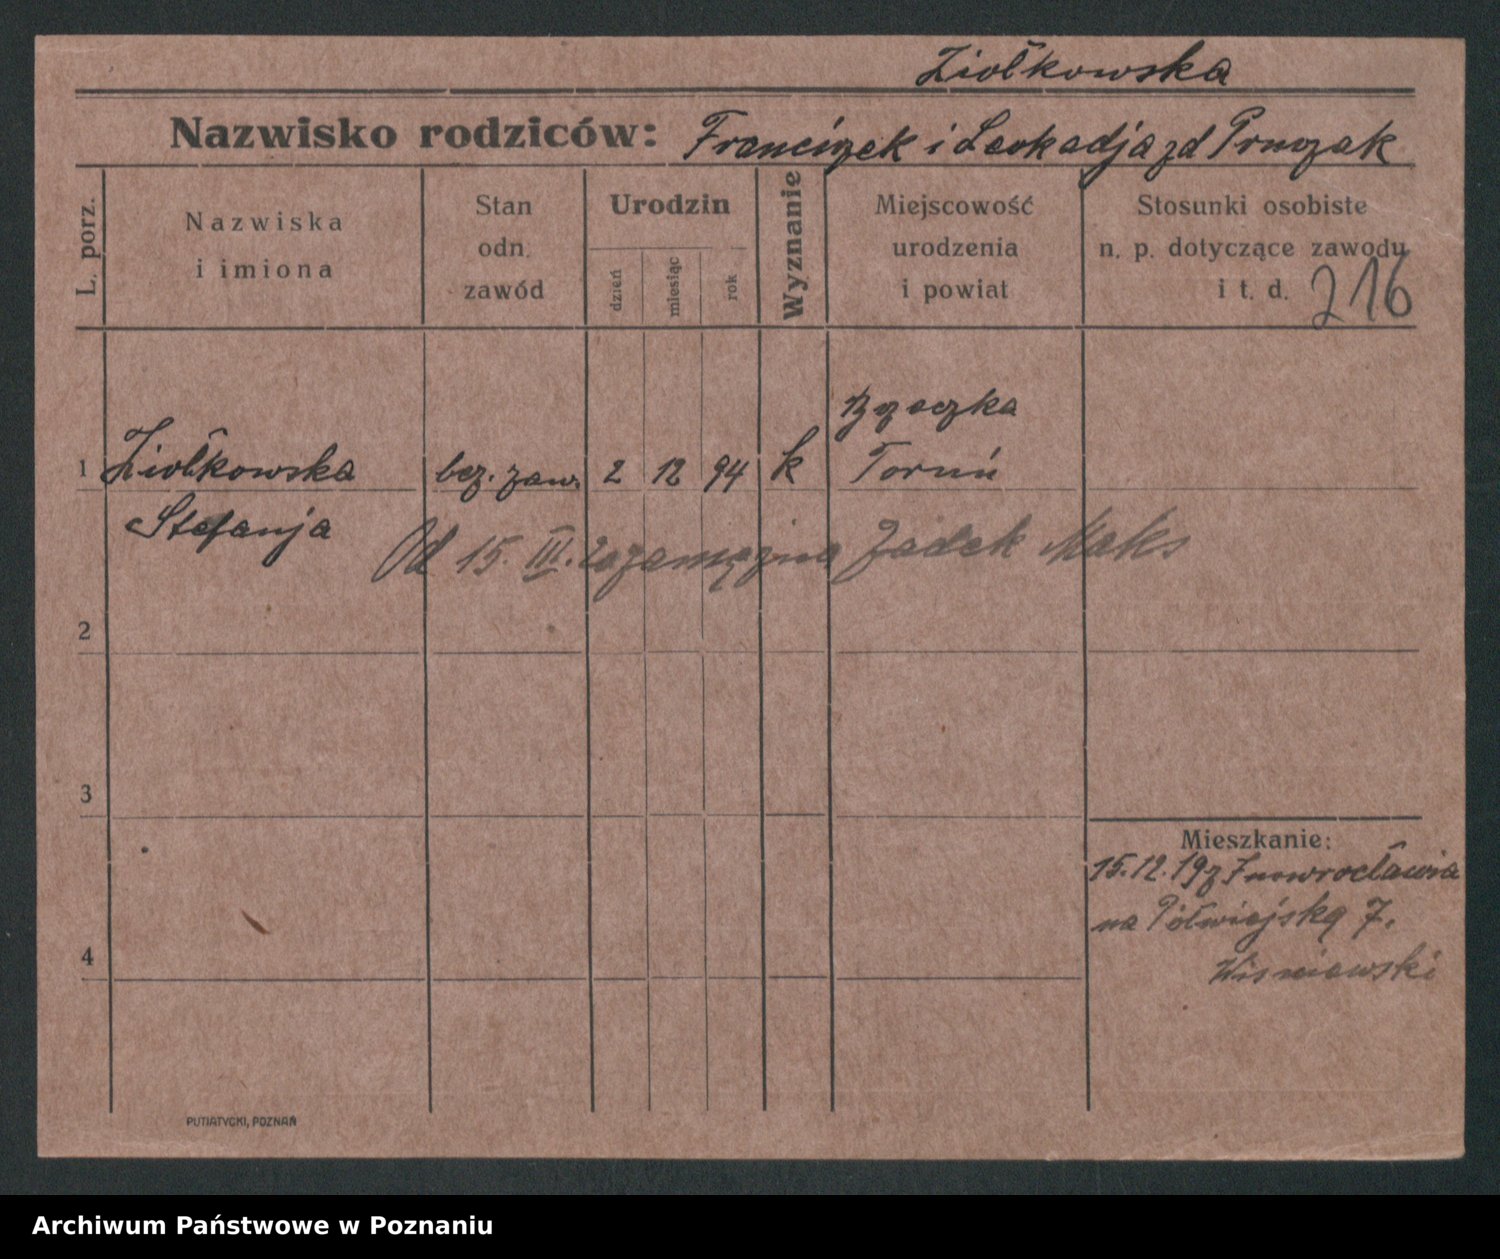 Ziółkowska
Nazwisko rodziców: Franciszek i Leokadja zd Pruczak
L. porz.
Nazwiska
i imiona
Stan
odn.
zawód
Urodzin
dzień
miesiąc
rok
Wyznanie
Miejscowość
urodzenia
i powiat
Stosunki osobiste
n. p. dotyczące zawodu
i t. d.
216
Rzęczka
1 Ziółkowska bez. zaw. 2 12 94 k Toruń
Stefanja
Od 15. III. 20 zamężna Zadek Maks
2
3
4
Mieszkanie:
15.12.19 z Inowrocławia
na Półwiejską 7.
Wisniewski
PUTIATYCKI, POZNAŃ
Archiwum Państwowe w Poznaniu